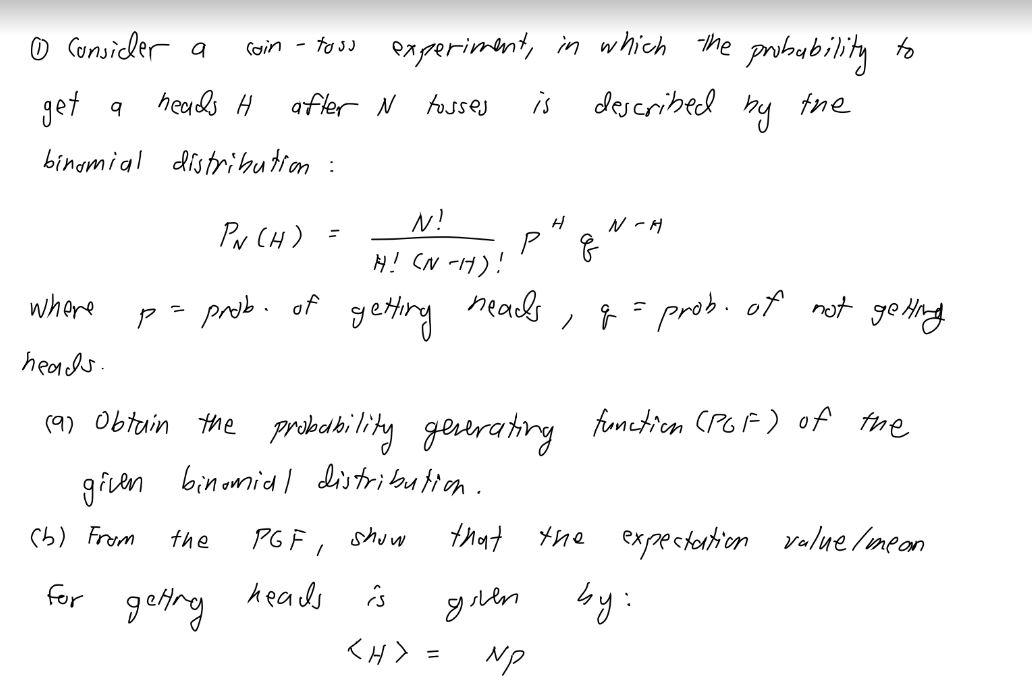 ① Consider a coin - toss experiment, in which the probability to
get a heads H after N tosses is described by the
binomial distribution :
P_N (H) = N! / H! (N-H)! p^H q^{N-H}
where p = prob. of getting heads, q = prob. of not getting
heads.
(a) Obtain the probability generating function (PGF) of the
given binomial distribution.
(b) From the PGF, show that the expectation value/mean
for getting heads is given by:
<H> = Np